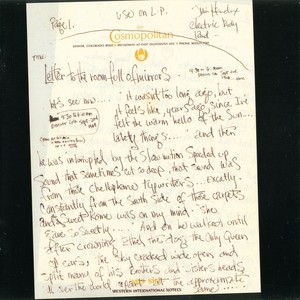 Page 1.
USED ON L.P.
Jimi Hendrix
electric lady
land
The
Cosmopolitan
DENVER, COLORADO 80202 • BROADWAY AT EAST EIGHTEENTH AVE • PHONE
TITLE:
Letter to the room full of mirrors
let's see now... it wasn't too long ago, but
it feels like years ago since I've
felt the warm hello of the Sun...
lately things... and then
he was interupted by the Slav nation Speeded up
Sound that sometimes cut so deep, that sound was
from those typewriters... exactly.
constantly from the South side of these carpets
and Sweet Rome was on my mind. She
came so sweetly... And on he waltzed until
after crowning Ethel, the dog, the Only Queen
of ears, the sky cracked wide open and
split many of his brothers and sisters heads
the approximate
WESTERN INTERNATIONAL HOTELS